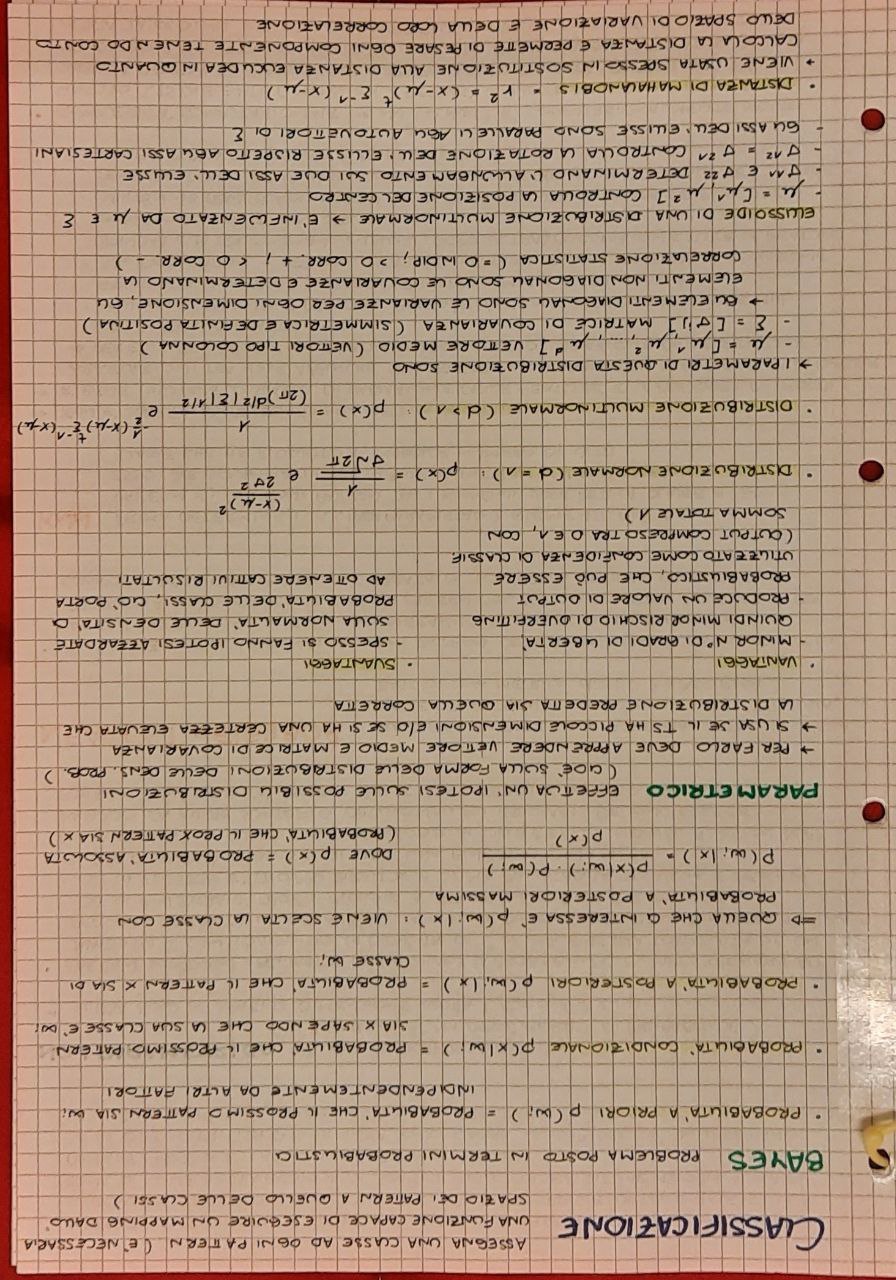 CLASSIFICAZIONE
ASSEGNA UNA CLASSE AD OGNI PATTERN (E' NECESSARIA
UNA FUNZIONE CAPACE DI ESEGUIRE UN MAPPING DALLO
SPAZIO DEI PATTERN A QUELLO DELLE CLASSI)
BAYES PROBLEMA POSTO IN TERMINI PROBABILISTICI
· PROBABILITA' A PRIORI p(ωi) = PROBABILITA' CHE IL PROSSIMO PATTERN SIA ωi
INDIPENDENTEMENTE DA ALTRI FATTORI
· PROBABILITA' CONDIZIONALE p(x|ωi) = PROBABILITA' CHE IL PROSSIMO PATTERN
SIA X SAPENDO CHE LA SUA CLASSE E' ωi
· PROBABILITA' A POSTERIORI p(ωi|x) = PROBABILITA' CHE IL PATTERN X SIA DI
CLASSE ωi
⇒ QUELLA CHE CI INTERESSA E' p(ωi|x): VIENE SCELTA LA CLASSE CON
PROBABILITA' A POSTERIORI MASSIMA
P(ωi|x) = p(x|ωi) · P(ωi) / p(x)
DOVE p(x) = PROBABILITA' ASSOLUTA
(PROBABILITA' CHE IL PROX PATTERN SIA X)
PARAMETRICO EFFETTUA UN' IPOTESI SULLE POSSIBILI DISTRIBUZIONI
(CIOE' SULLA FORMA DELLE DISTRIBUZIONI DELLE DENS. PROB.)
→ PER FARLO DEVE APPRENDERE VETTORE MEDIO E MATRICE DI COVARIANZA
→ SI USA SE IL TS HA PICCOLE DIMENSIONI E/O SE SI HA UNA CERTEZZA ELEVATA CHE
LA DISTRIBUZIONE PREDETTA SIA QUELLA CORRETTA
· VANTAGGI
- MINOR N° DI GRADI DI LIBERTA',
QUINDI MINOR RISCHIO DI OVERFITTING
- PRODUCE UN VALORE DI OUTPUT
PROBABILISTICO, CHE PUÒ ESSERE
UTILIZZATO COME CONFIDENZA DI CLASSIF.
(OUTPUT COMPRESO TRA 0 E 1, CON
SOMMA TOTALE 1)
· SVANTAGGI
- SPESSO SI FANNO IPOTESI AZZARDATE
SULLA NORMALITA' DELLE DENSITA' DI
PROBABILITA' DELLE CLASSI, CIO' PORTA
AD OTTENERE CATTIVI RISULTATI
· DISTRIBUZIONE NORMALE (d = 1): p(x) = 1/(σ√2π) e^((x-μ)²/2σ²)
· DISTRIBUZIONE MULTINORMALE (d > 1): p(x) = 1/((2π)^d/2 |Σ|^1/2) e^(-½(x-μ)ᵗ Σ⁻¹(x-μ))
→ I PARAMETRI DI QUESTA DISTRIBUZIONE SONO
- μ = [μ¹, μ², ..., μᵈ] VETTORE MEDIO (VETTORI TIPO COLONNA)
- Σ = [σⁱʲ] MATRICE DI COVARIANZA (SIMMETRICA E DEFINITA POSITIVA)
→ GLI ELEMENTI DIAGONALI SONO LE VARIANZE PER OGNI DIMENSIONE, GLI
ELEMENTI NON DIAGONALI SONO LE COVARIANZE E DETERMINANO LA
CORRELAZIONE STATISTICA (=0 INDIP; >0 CORR. +; <0 CORR. -)
ELLISSOIDE DI UNA DISTRIBUZIONE MULTINORMALE → E' INFLUENZATO DA μ E Σ
- μ = [μ¹, μ²] CONTROLLA LA POSIZIONE DEL CENTRO
- σ¹¹ E σ²² DETERMINANO L'ALLUNGAMENTO SUI DUE ASSI DELL'ELLISSE
- σ¹² = σ²¹ CONTROLLA LA ROTAZIONE DELL'ELLISSE RISPETTO AGLI ASSI CARTESIANI
- GLI ASSI DELL'ELLISSE SONO PARALLELI AGLI AUTOVETTORI DI Σ
· DISTANZA DI MAHALANOBIS = r² = (x-μ)ᵗ Σ⁻¹ (x-μ)
→ VIENE USATA SPESSO IN SOSTITUZIONE ALLA DISTANZA EUCLIDEA IN QUANTO
CALCOLA LA DISTANZA E PERMETTE DI PESARE OGNI COMPONENTE TENENDO CONTO
DELLO SPAZIO DI VARIAZIONE E DELLA LORO CORRELAZIONE